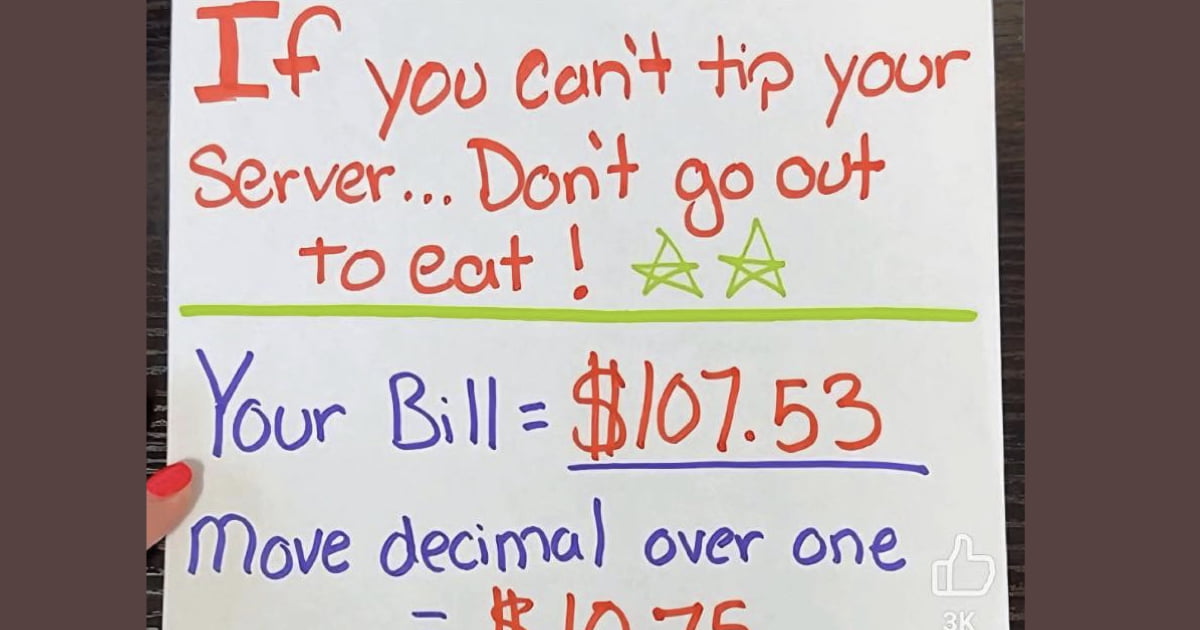 If you can't tip your
server... Don't go out
to eat!
Your Bill = $107.53
Move decimal over one
= $10.75
3K